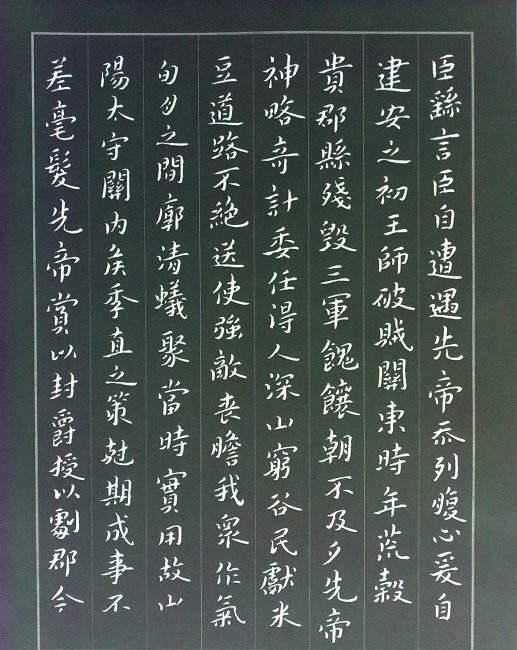 臣繇言臣自遭遇先帝忝列腹心爰自
建安之初王師破賊關東時年荒穀
貴郡縣殘毀三軍餽饟朝不及夕先帝
神略奇計委任得人深山窮谷民獻米
豆道路不絶送使強敵喪膽我衆作氣
旬月之間廓清蟻聚當時實用故山
陽太守關内侯季直之策尅期成事不
差毫髮先帝賞以封爵授以劇郡今